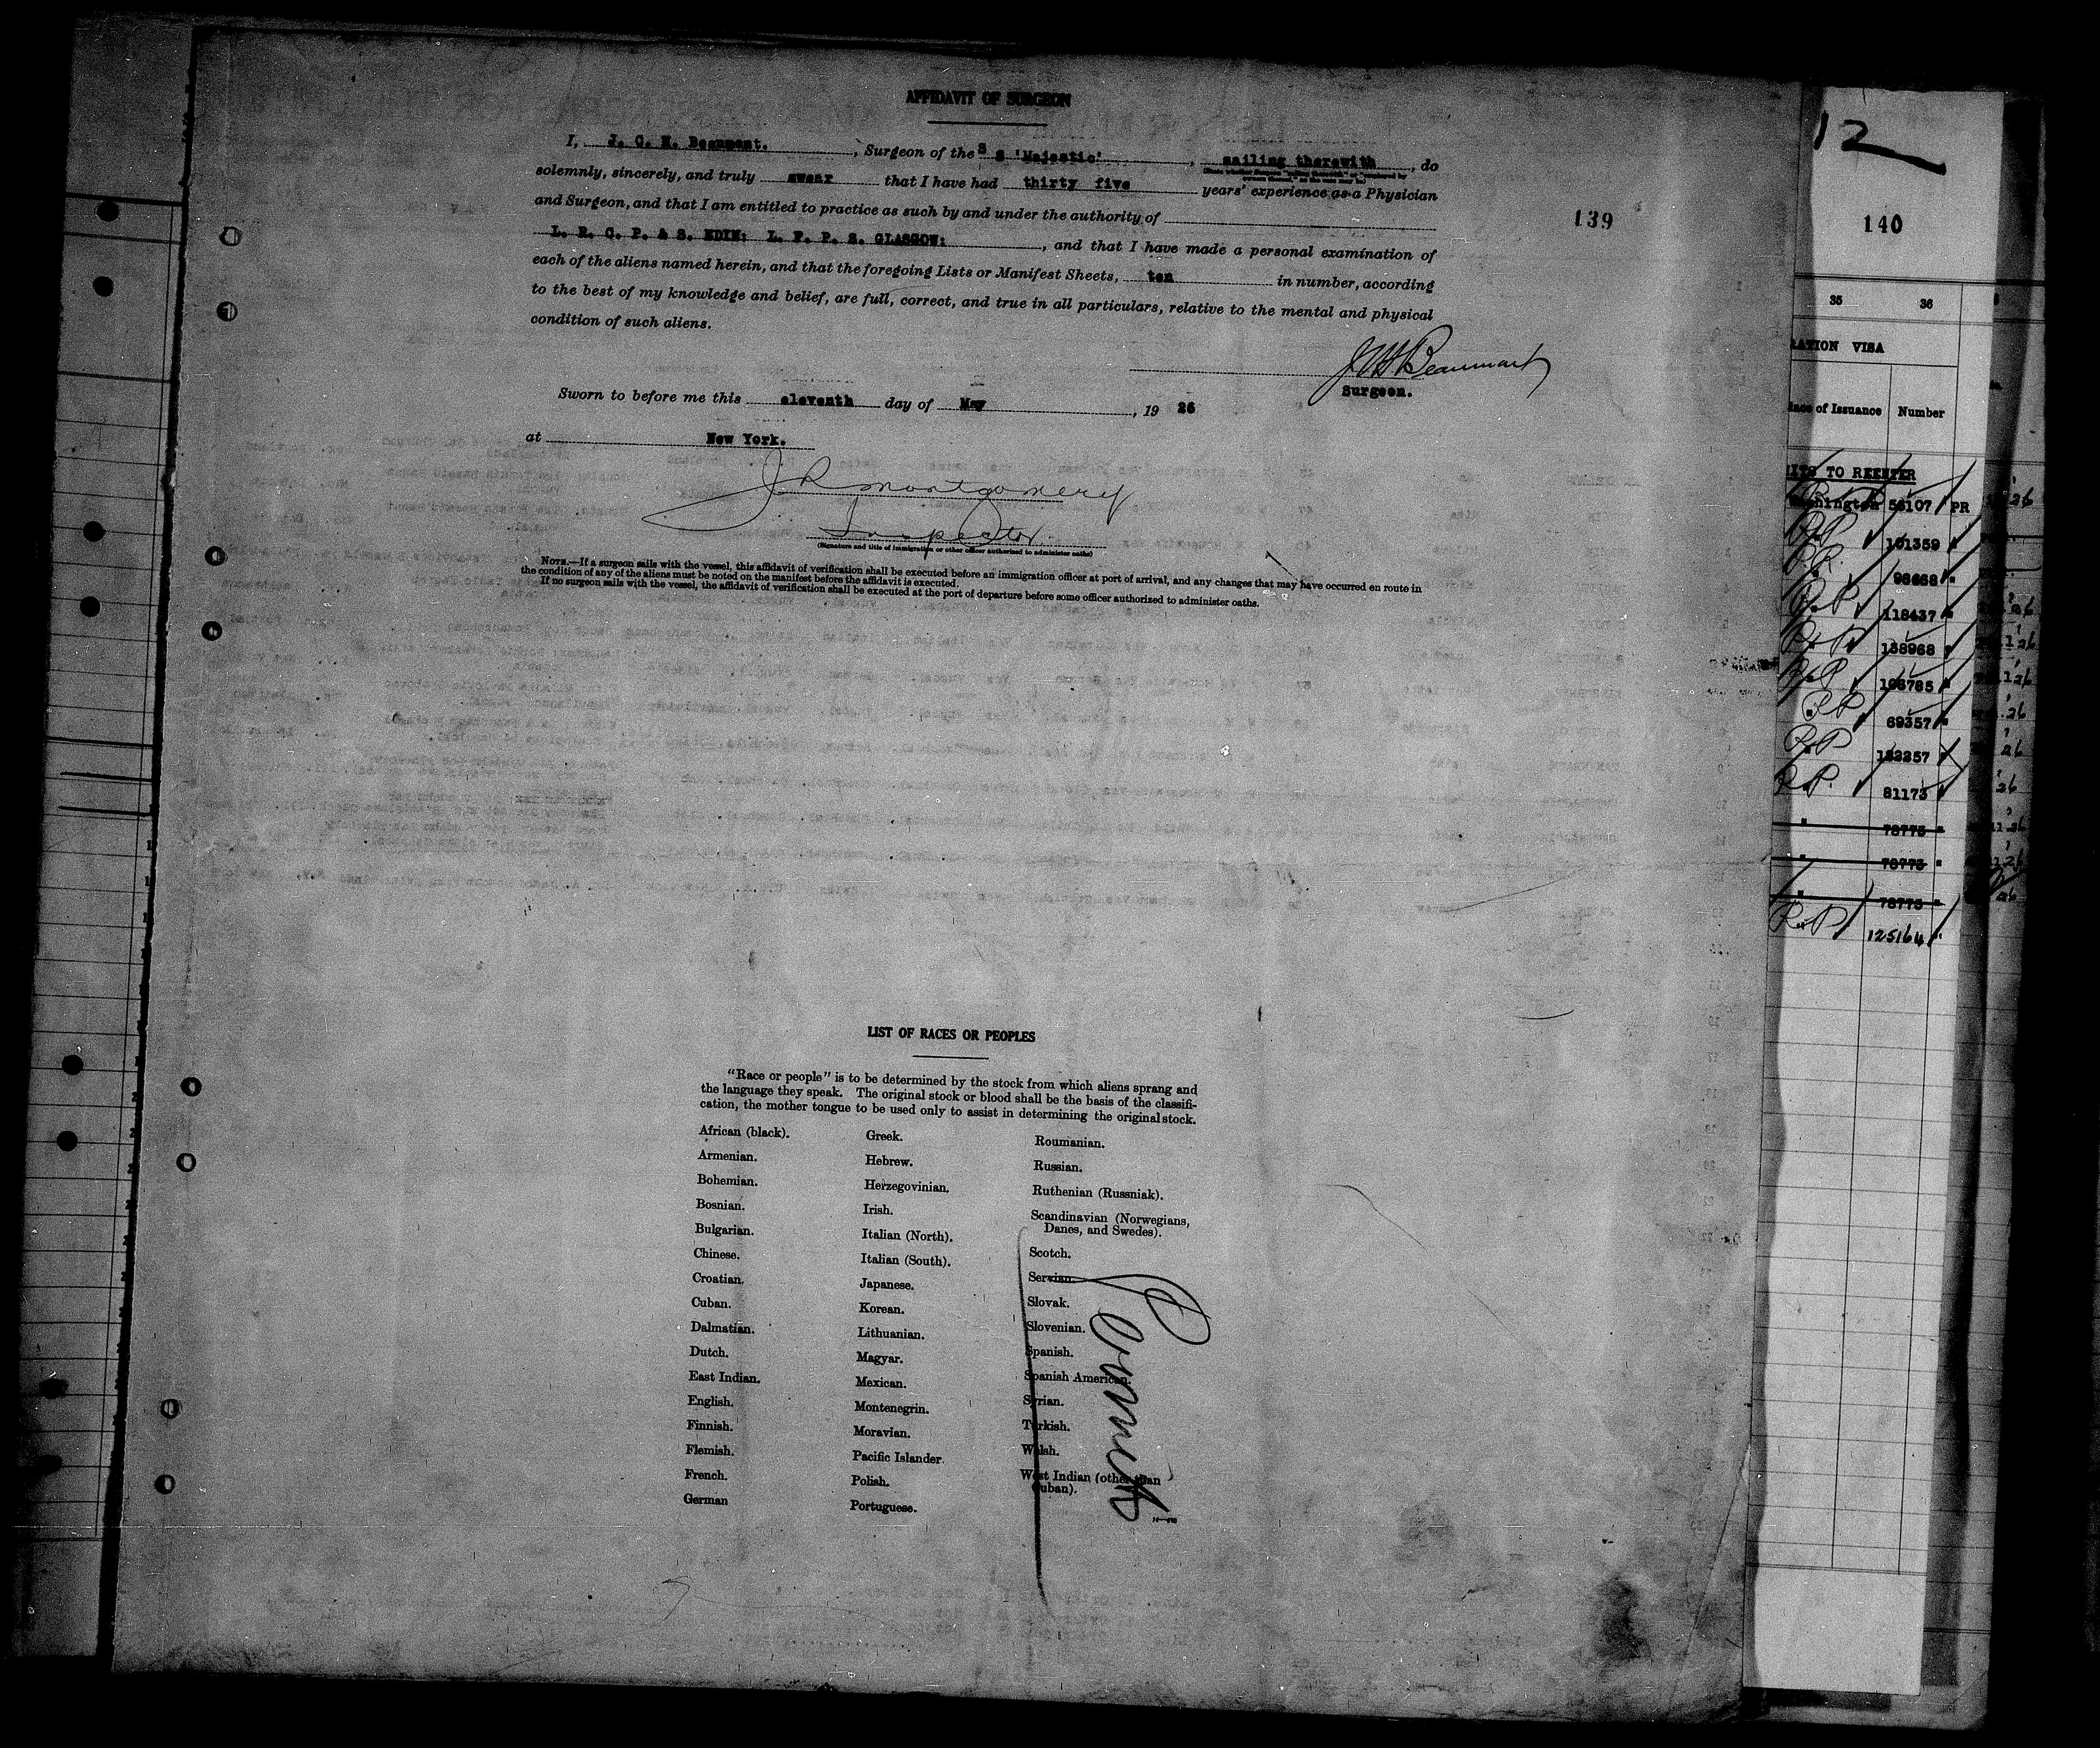 AFFIDAVIT OF SURGEON
I, J. C. H. Beaumont. , Surgeon of the S S 'Majestic' , sailing therewith , do
solemnly, sincerely, and truly swear that I have had thirty five years' experience as a Physician
and Surgeon, and that I am entitled to practice as such by and under the authority of
L. R. C. P. & S. EDIN; L. F. P. S. GLASGOW; , and that I have made a personal examination of
each of the aliens named herein, and that the foregoing Lists or Manifest Sheets, ten in number, according
to the best of my knowledge and belief, are full, correct, and true in all particulars, relative to the mental and physical
condition of such aliens.
Surgeon.
Sworn to before me this eleventh day of May , 19 26
at New York.
J R Montgomery
Inspector
(Signature and title of immigration or other officer authorized to administer oaths)
NOTE.—If a surgeon sails with the vessel, this affidavit of verification shall be executed before an immigration officer at port of arrival, and any changes that may have occurred en route in
the condition of any of the aliens must be noted on the manifest before the affidavit is executed.
If no surgeon sails with the vessel, the affidavit of verification shall be executed at the port of departure before some officer authorized to administer oaths.
139
LIST OF RACES OR PEOPLES
"Race or people" is to be determined by the stock from which aliens sprang and
the language they speak. The original stock or blood shall be the basis of the classifi-
cation, the mother tongue to be used only to assist in determining the original stock.
African (black).
Armenian.
Bohemian.
Bosnian.
Bulgarian.
Chinese.
Croatian.
Cuban.
Dalmatian.
Dutch.
East Indian.
English.
Finnish.
Flemish.
French.
German
Greek.
Hebrew.
Herzegovinian.
Irish.
Italian (North).
Italian (South).
Japanese.
Korean.
Lithuanian.
Magyar.
Mexican.
Montenegrin.
Moravian.
Pacific Islander.
Polish.
Portuguese.
Roumanian.
Russian.
Ruthenian (Russniak).
Scandinavian (Norwegians,
Danes, and Swedes).
Scotch.
Servian.
Slovak.
Slovenian.
Spanish.
Spanish American.
Syrian.
Turkish.
Welsh.
West Indian (other than
Cuban).
Permit
12
140
35 36
VISA
of Issuance Number
TO REENTER
PR
101359
118437
138968
69357
81173
78775
78775
78775
125164